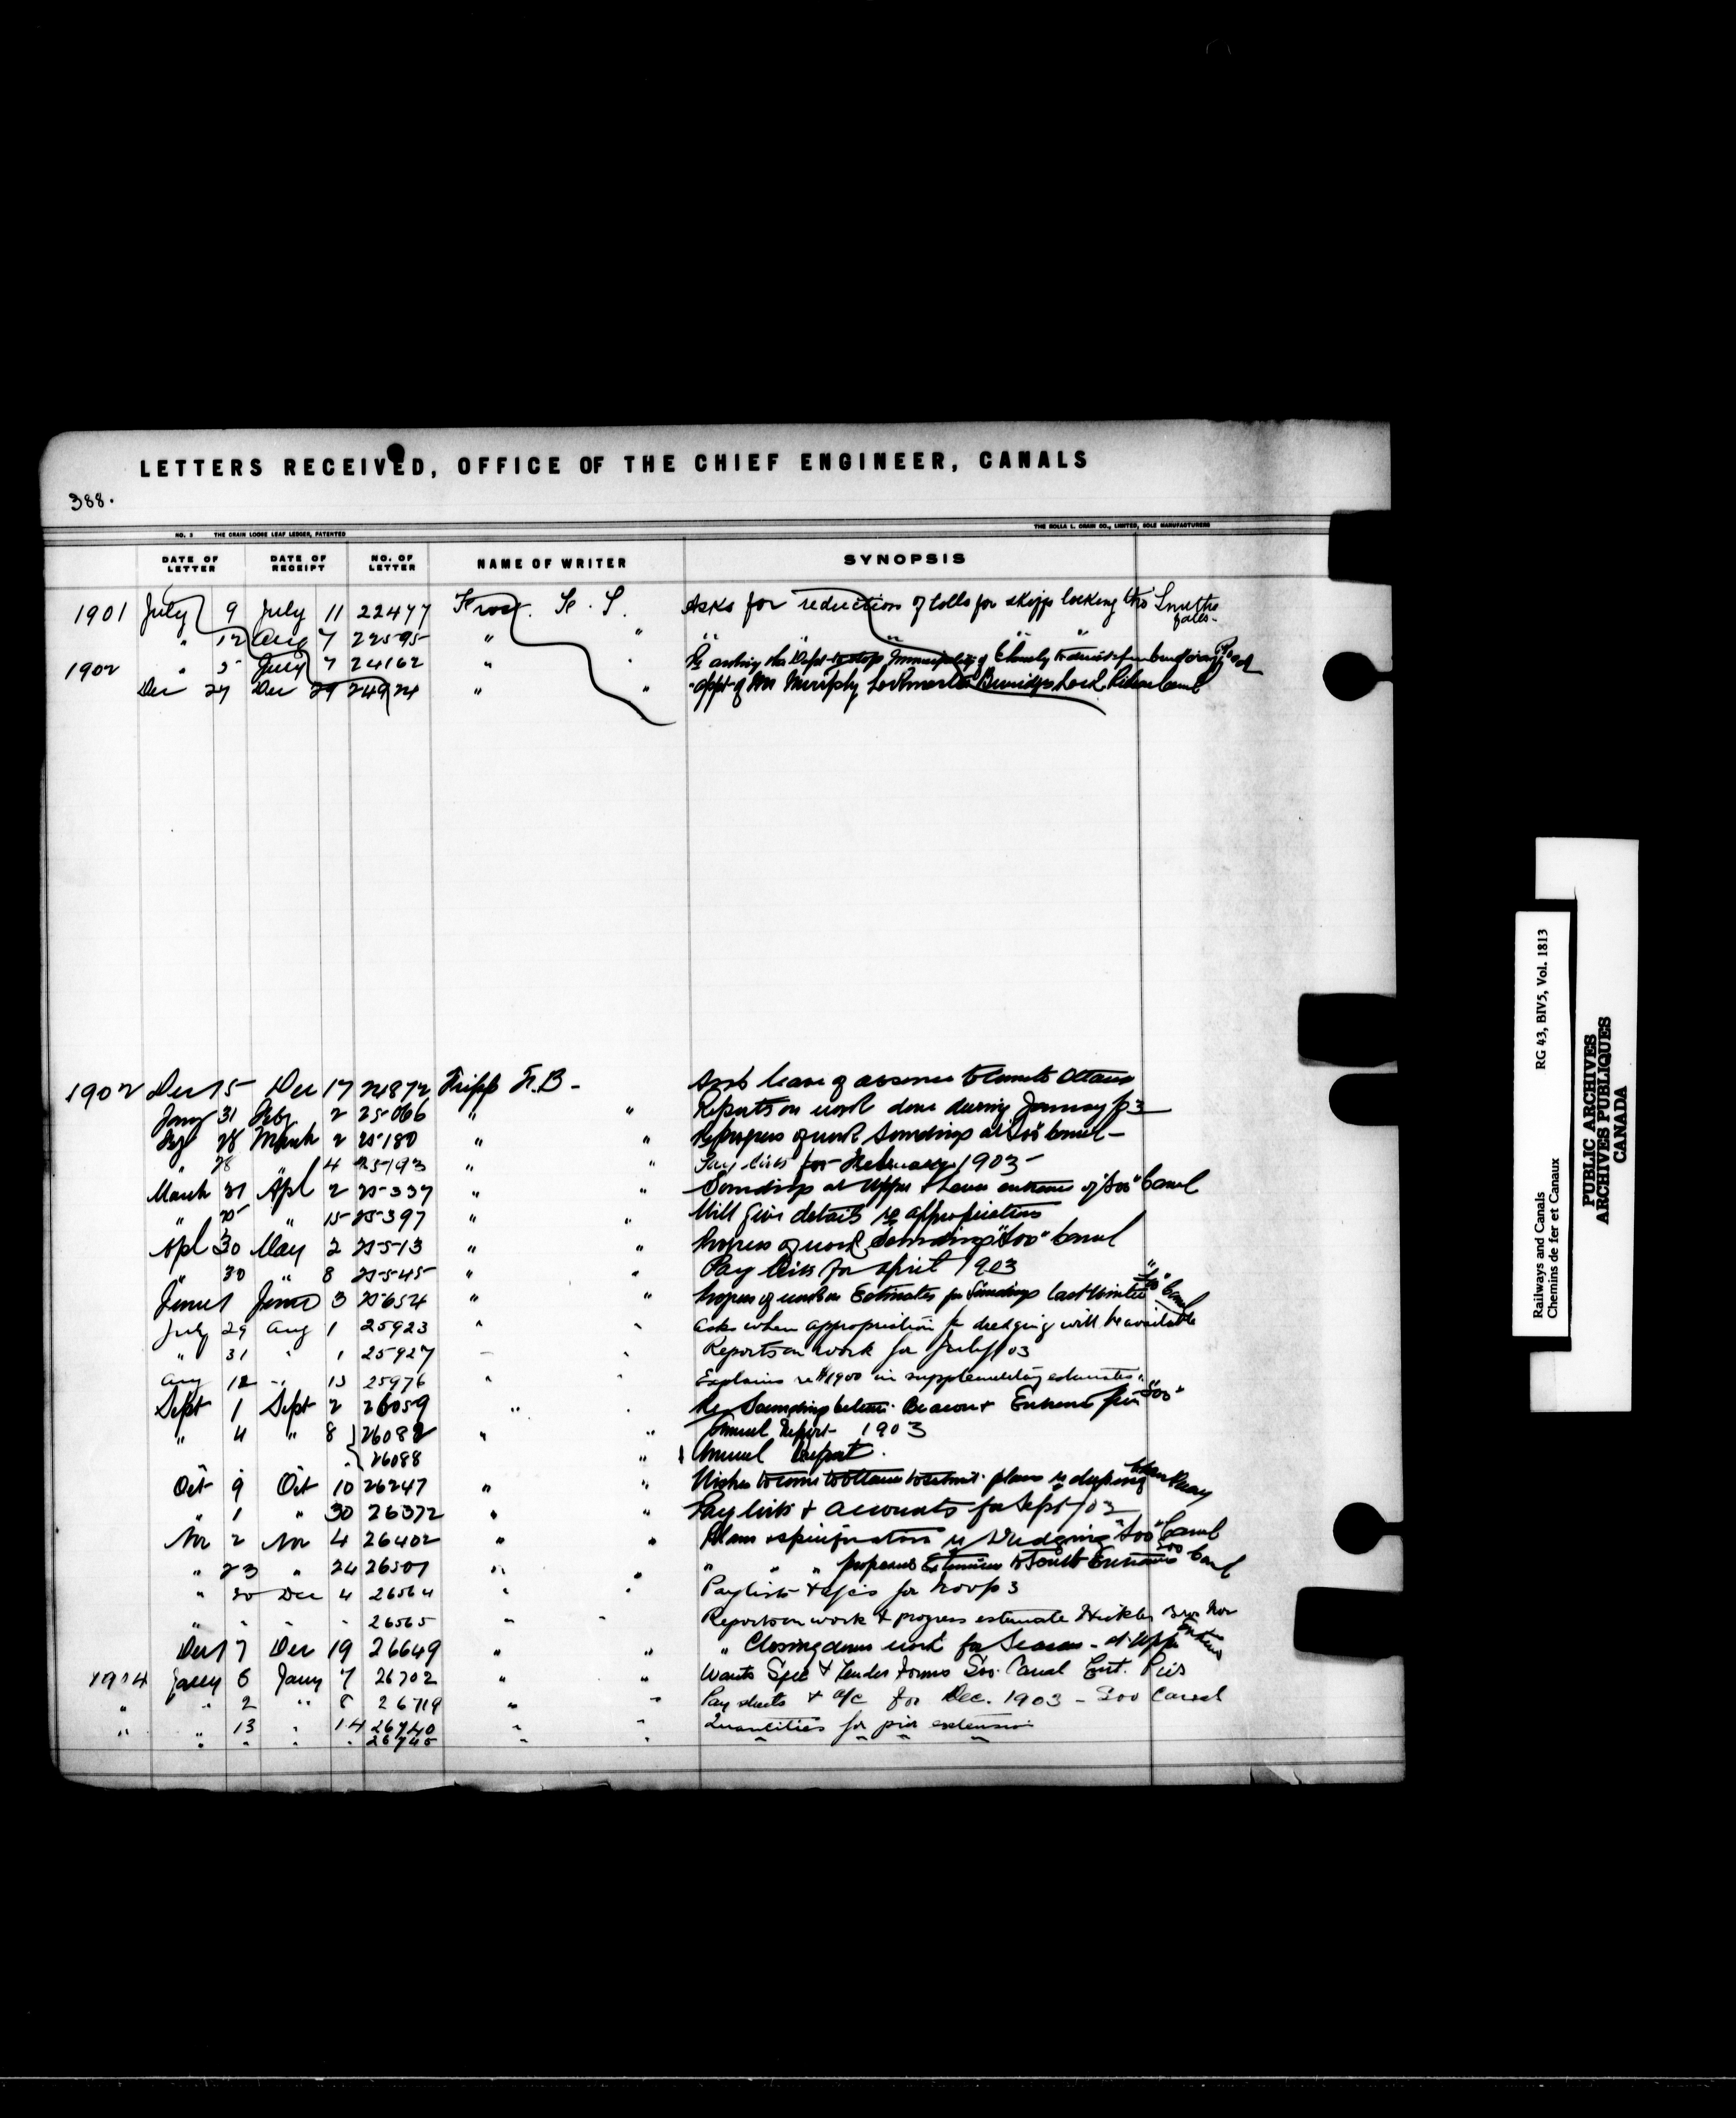 LETTERS RECEIVED, OFFICE OF THE CHIEF ENGINEER, CANALS
388.
NO. 3 THE CRAIN LOOSE LEAF LEDGER, PATENTED THE ROLLA L. CRAIN CO., LIMITED, SOLE MANUFACTURERS
DATE OF LETTER DATE OF RECEIPT NO. OF LETTER NAME OF WRITER SYNOPSIS
1901 July 9 July 11 22477 Frost. F. T. Asks for reduction of tolls for skiffs locking thro Smiths
falls.
" 12 Aug 7 22595 " " " " " " "
1902 " 5 July 7 24162 " " Re asking the Dept to stop Municipality of
Dec 27 Dec 29 24924 " " appt of Mr Murphy Lockmaster Lock Rideau Canal
1902 Dec 15 Dec 17 24872 Fripp F. B. Asks leave of absence to come to Ottawa
Jany 31 Feby 2 25066 " " Reports on work done during January /03
Feby 28 March 2 25180 " " Re progress of work Soundings at "Soo" Canal
" 28 " 4 25193 " " Pay lists for February 1903
March 31 Apl 2 25337 " " Soundings at Upper & Lower entrance of "Soo" Canal
" 25 " 15 25397 " " Will give details re appropriation
Apl 30 May 2 25513 " " Progress of work Soundings "Soo" Canal
" 30 " 8 25545 " " Pay lists for April 1903
June 1 June 3 25654 " " Progress of work on Estimates for Soundings last Winter "Soo" Canal
July 29 Aug 1 25923 " " Asks when appropriation for dredging will be available
" 31 " 1 25927 " " Reports on work for July/03
Aug 12 " 13 25976 " " Explains re $1900 in supplementary estimates.
Sept 1 Sept 2 26059 " " Re Soundings between Beacon & Entrance Pier "Soo"
" 4 " 8 26082 " " Annual Report 1903
" 26088 " Annual Report.
Oct 9 Oct 10 26247 " " Wishes to come to Ottawa to submit plans re deepening
" 1 " 30 26372 " " Pay lists & accounts for Sept /03
Nov 2 Nov 4 26402 " " Plans & specifications re Dredging "Soo" Canal
" 23 " 24 26507 " " " " " proposed Extension to South Entrance Soo Canal
" 30 Dec 4 26564 " " Pay lists & a/cs for Nov /03
" " " " 26565 " " Reports on work & progress estimate Nov
Dec 17 Dec 19 26649 " " " Closing down work for Season - at Upper Entrance
1904 Jany 6 Jany 7 26702 " " Wants Spec & Tender Forms Soo. Canal Ent. Pier
" " 2 " 8 26719 " " Pay sheets & a/c for Dec. 1903 - Soo Canal
" " 13 " 14 26740 " " Quantities for pier extension
" " " " 26745 " " " " " "
Railways and Canals RG 43, BIV5, Vol. 1813
Chemins de fer et Canaux
PUBLIC ARCHIVES
ARCHIVES PUBLIQUES
CANADA